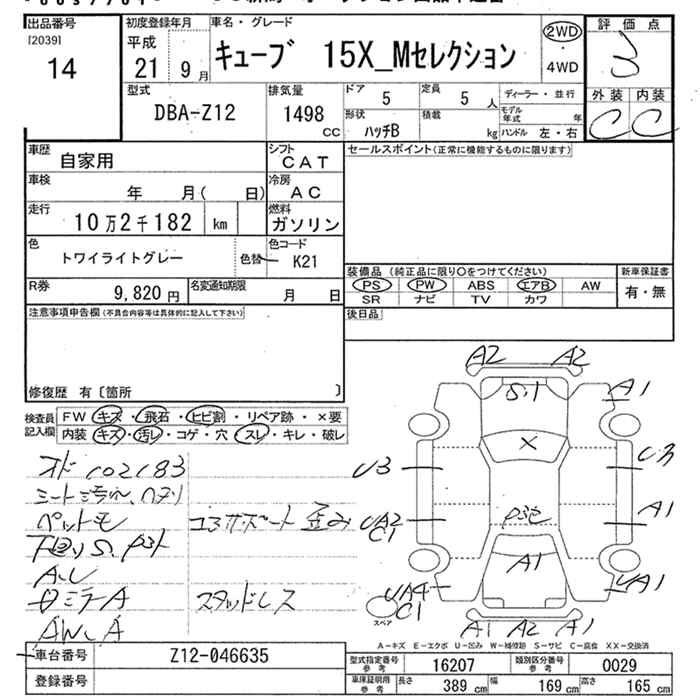 出品番号
[2039]
14
初度登録年月
平成
21 9 月
車名・グレード
キューブ 15X_Mセレクション
2WD
・
4WD
評価点
3
外装 内装
C C
型式
DBA-Z12
排気量
1498
CC
ドア
5
定員
5 人
形状
ハッチB
積載
kg
ディーラー・並行
モデル年式 年
ハンドル 左・右
車歴
自家用
シフト
CAT
車検
年 月( 日)
冷房
AC
走行
10万2千182 km
燃料
ガソリン
色
トワイライトグレー
色替
色コード
K21
R券
9,820 円
名変通知期限
月 日
セールスポイント(正常に機能するものに限ります)
装備品 (純正品に限り〇をつけてください)
PS PW ABS エアB AW
SR ナビ TV カワ
新車保証書
有・無
後日品
注意事項申告欄(不具合内容等は具体的に記入して下さい)
修復歴 有〔箇所 〕
検査員記入欄
FW キズ・飛石・ヒビ割・リペア跡・×要
内装 キズ・汚レ・コゲ・穴・スレ・キレ・破レ
オド 102183
シート汚れ、ヘタリ
ペットモ
コアサポート 歪み
A、U
スタッドレス
AW、A
A2 A2
S、1
A1
X
U3
U3
UA2
C1
A1
A1
UA4
C1
UA1
A1 A2 A1
スペア
A-キズ E-エクボ U-凹み W-補修跡 S-サビ C-腐食 XX-交換済
車台番号
Z12-046635
登録番号
型式指定番号
参考
16207
類別区分番号
参考
0029
車庫証明用
参考
長さ
389 cm
幅
169 cm
高さ
165 cm